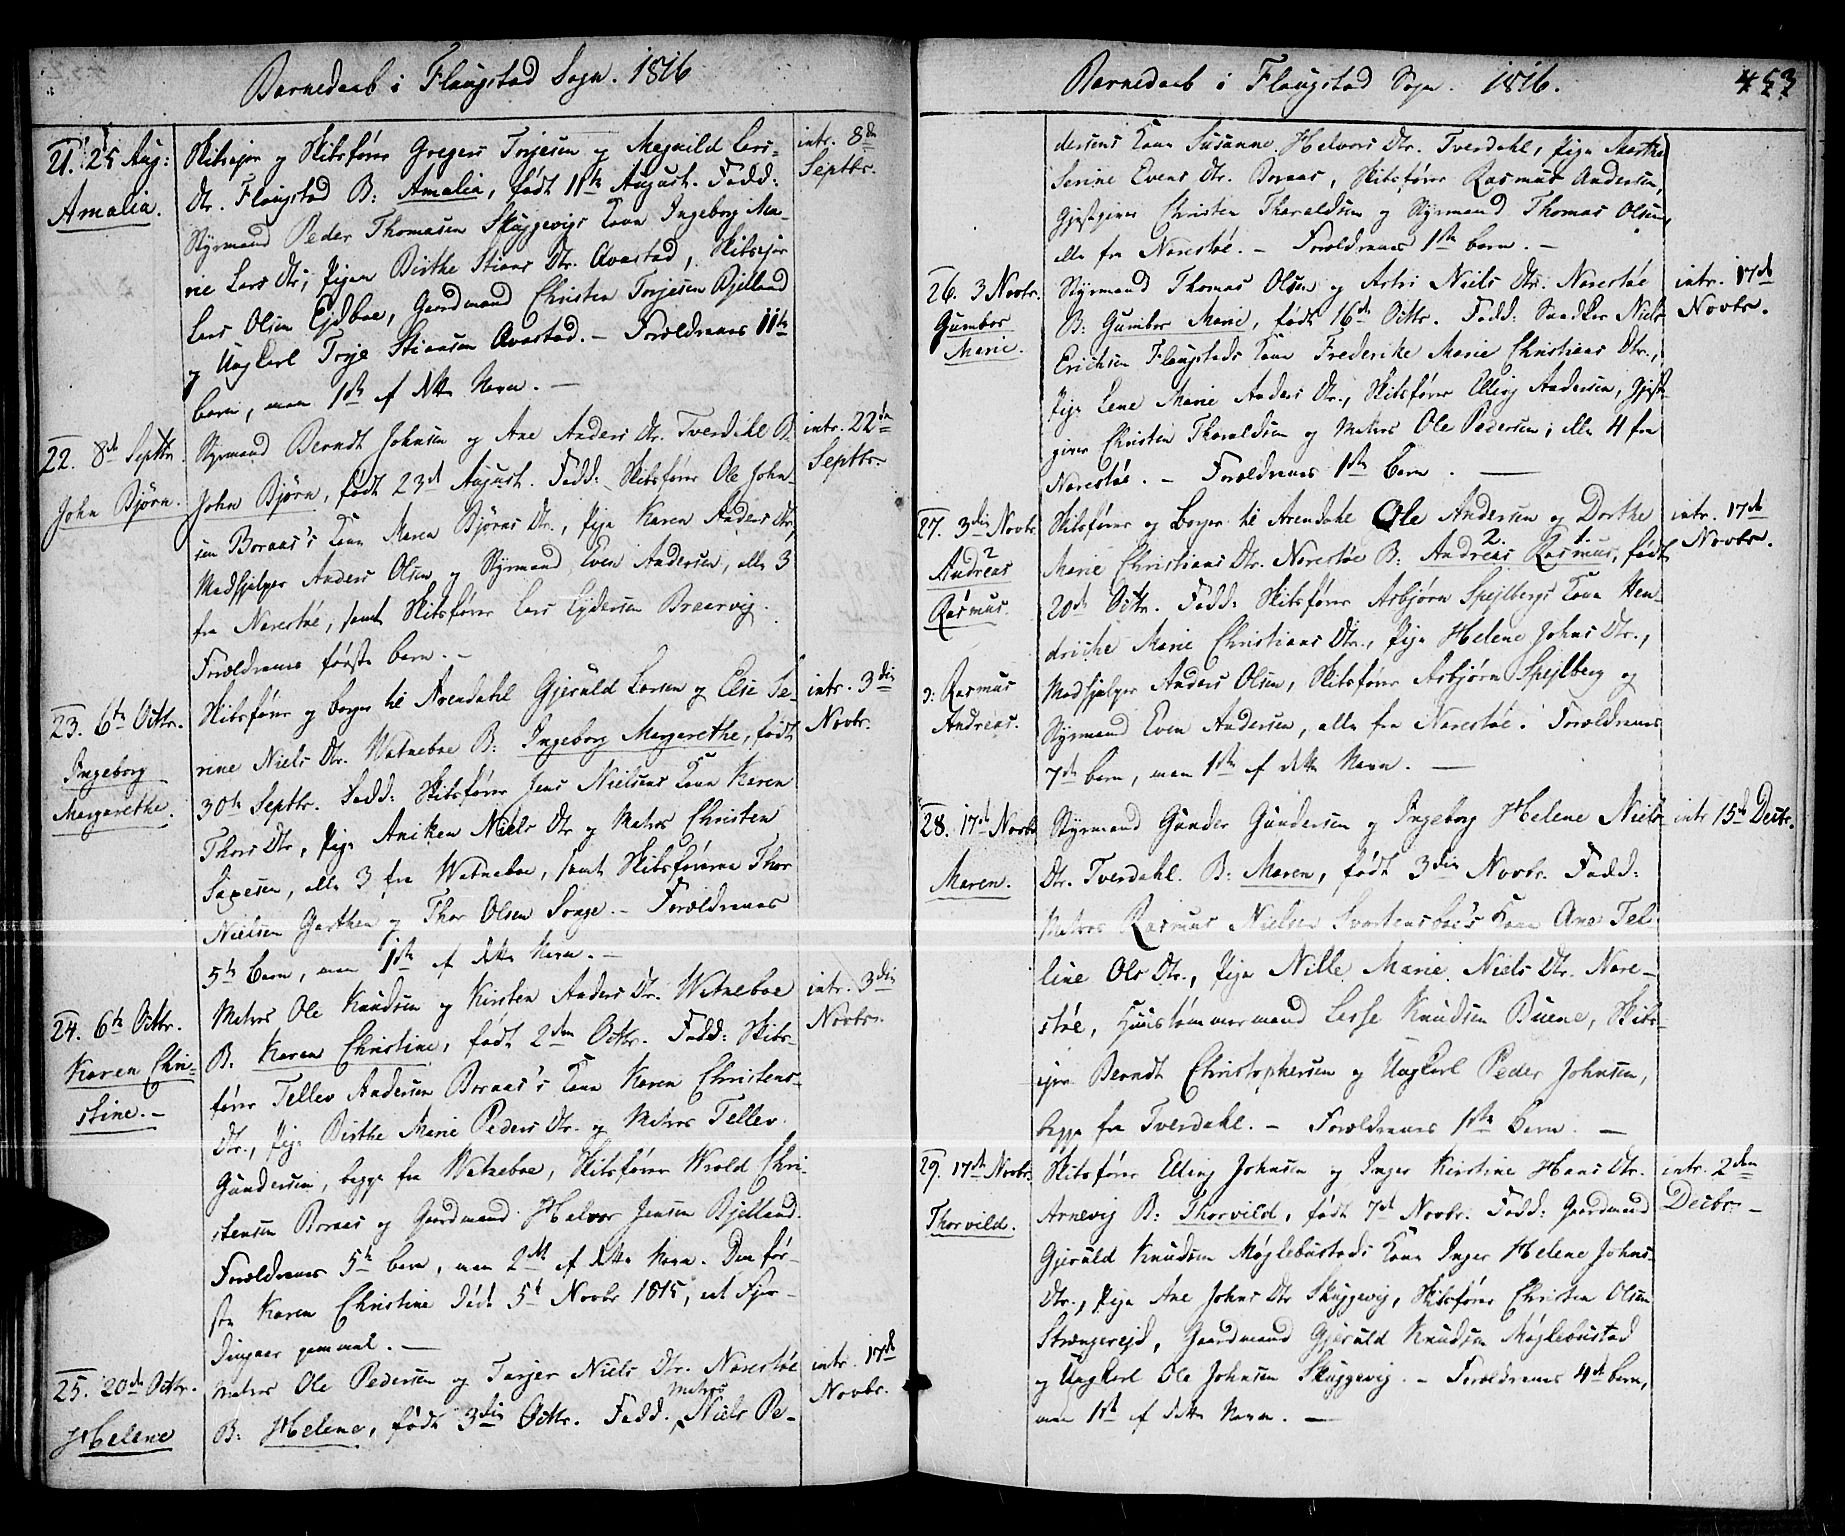 Barnedaab i Flaugstad Sogn. 1816
21. 25 Aug:
Amalia.
Skibseier og Skibsfører Gregers Torjesen og Magnild Lars
Dtr. Flaugstad B: Amalia, født 11te August. Fadd:
Styrmand Peder Thomasen Skuggevigs Kone Ingeborg Ma-
rie Lars Dtr, Pigen Birthe Stians Dtr. Avastad, Skibseier
Lars Olsen Ejdboe, Gaardmand Christen Torjesen Bjelland
og Ungkarl Torje Stiansen Avastad. – Forældrenes 11te
barn, men 1ste af dette Navn. –
intr. 8de
Septbr.
22. 8de Septbr.
John Bjørn.
Styrmand Berndt Johnsen og Ane Anders Dtr. Tverdahl B.
John Bjørn, født 23de August. Fadd: Skibsfører Ole John-
sen Boraas's Kone Maren Bjørns Dtr., Pige Karen Anders Dtr,
Medhjelper Anders Olsen og Styrmand Even Andersen, alle 3
fra Narestøe, samt Skibsfører Lars Eydersen Braarvig.
Forældrenes første barn. –
intr. 22de
Septbr.
23. 6te Octbr.
Ingeborg
Margarethe.
Skibsfører og borger til Arendahl Gjeruld Larsen og Else Se-
rine Niels Dtr. Watneboe B: Ingeborg Margarethe, født
30te Septbr. Fadd: Skibsfører Jens Nielsens Kone Karen
Thors Dtr, Pige Aniken Niels Dtr og Matros Christen
Saxesen, alle 3 fra Watneboe, samt Skibsførerne Thor
Nielsen Garthen og Thor Olsen Songe. – Forældrenes
5te barn, men 1ste af dette Navn. –
intr. 3die
Novbr.
24. 6te Octbr.
Karen Chri-
stine. –
Matros Ole Knudsen og Kirsten Anders Dtr. Watneboe
B. Karen Christine, født 2den Octbr. Fadd: Skibs-
fører Tellev Andersen Boraas's Kone Karen Christens
Dtr., Pige Birthe Marie Peders Dtr. og Matros Tellev
Gundersen, begge fra Watneboe, Skibsfører Wrold Chri-
stensen Boraas og Gaardmand Halvor Jensen Bjelland.
Forældrenes 5te barn, men 2det af dette Navn. Den før-
ste Karen Christine døde 5te Novbr 1815, et Fjer-
dingaar gammel. –
intr. 3die
Novbr.
25. 20de Octbr.
Helene
Matros Ole Pedersen og Tarjer Niels Dtr. Narestøe
B: Helene, født 3die Octbr. Fadd. Matros Niels Pe-
intr. 17de
Novbr.
Barnedaab i Flaugstad Sogn. 1816.
453
dersens Kone Susanne Helvors Dtr. Tverdahl, Pige Marthe
Serine Evens Dtr. Boraas, Skibsfører Rasmus Andersen,
Gjestgiver Christen Tharaldsen og Styrmand Thomas Olsen,
alle fra Narestøe. – Forældrenes 1ste barn. –
26. 3 Novbr.
Gumbor
Marie.
Styrmand Thomas Olsen og Astri Niels Dtr. Narestøe
B: Gumbor Marie, født 16de Octbr. Fadd: Snedker Niels
Erichsen Flaugstads Kone Frederike Marie Christians Dtr.,
Pige Lene Marie Anders Dtr., Skibsfører Elling Andersen, Gjest-
giver Christen Tharaldsen og Matros Ole Pedersen, alle 4 fra
Narestøe. – Forældrenes 1ste barn. –
intr. 17de
Novbr.
27. 3die Novbr.
Andreas 2
Rasmus.
ɔ: Rasmus
Andreas.
Skibsfører og Borger til Arendahl Ole Andersen og Dorthe
Marie Christians Dtr. Narestøe B: Andreas 2 Rasmus 1, født
20de Octbr. Fadd: Skibsfører Asbjørn Spejlbergs Kone Hen-
driche Marie Christians Dtr., Pige Helene Johns Dtr.,
Medhjelper Anders Olsen, Skibsfører Asbjørn Spejlberg og
Styrmand Even Andersen, alle fra Narestøe. Forældrenes
7de barn, men 1ste af dette Navn. –
intr. 17de
Novbr.
28. 17de Novbr
Maren.
Styrmand Gunder Gundersen og Ingeborg Helene Niels-
Dtr. Tverdahl. B: Maren, født 3die Novbr. Fadd:
Matros Rasmus Nielsen Svartensboe's Kone Ane Tel-
line Ols Dtr., Pige Nille Marie Niels Dtr. Nare-
støe, Huustømmermand Lasse Knudsen Buene, Skibs-
ejer Berndt Christophersen og Ungkarl Peder Johnsen,
begge fra Tverdahl. – Forældrenes 1ste barn. –
intr 15de Decbr.
29. 17de Novbr.
Thorvild.
Skibsfører Elling Johnsen og Inger Kirstine Hans Dtr.
Arnevig B: Thorvild, født 7de Novbr. Fadd: Gaardmand
Gjeruld Knudsen Møglebustads Kone Inger Helene Johns
Dtr., Pige Ane Johns Dtr Skuggevig, Skibsfører Christen Olsen
Strængerejd, Gaardmand Gjeruld Knudsen Møglebustad
og Ungkarl Ole Johnsen Skuggevig. – Forældrenes 4de barn,
men 1ste af dette Navn. –
intr. 2den
Decbr. –